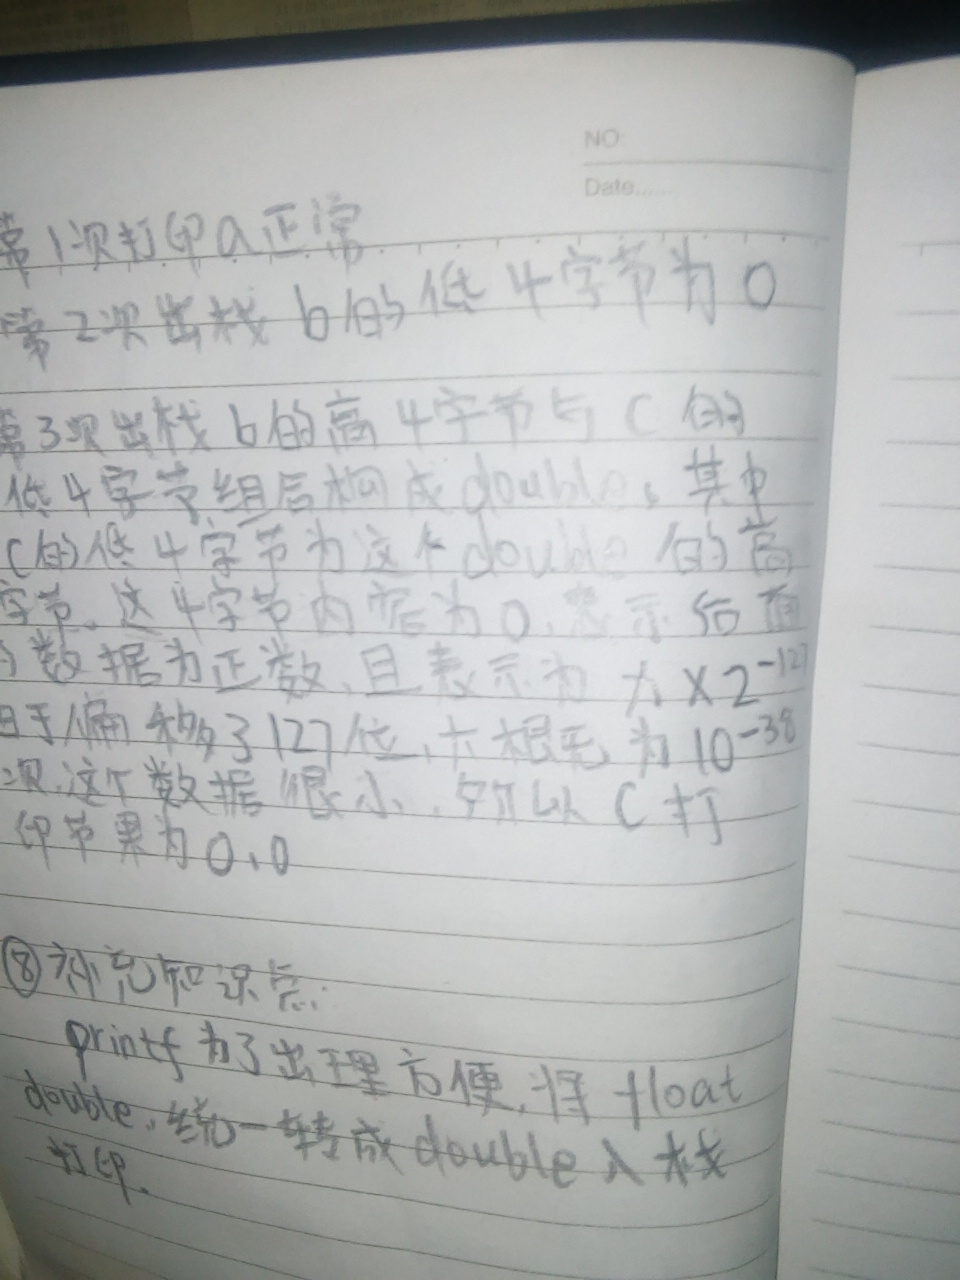 NO:
Date......
第1次打印a正常
第2次出栈 b的低4字节为0
第3次出栈b的高4字节与C的
低4字节组后构成double。其中
C的低4字节为这个double的高
字节.这4字节内据为0,表示后面
数据为正数,且表示为 X2⁻¹²⁷
由于偏移了127位,大概是为10⁻³⁸
次,这个数据很小,所以C打
印节果为0.0
⑧补充知识点:
printf为了出理方便,将float
double,统一转成double入栈
打印.